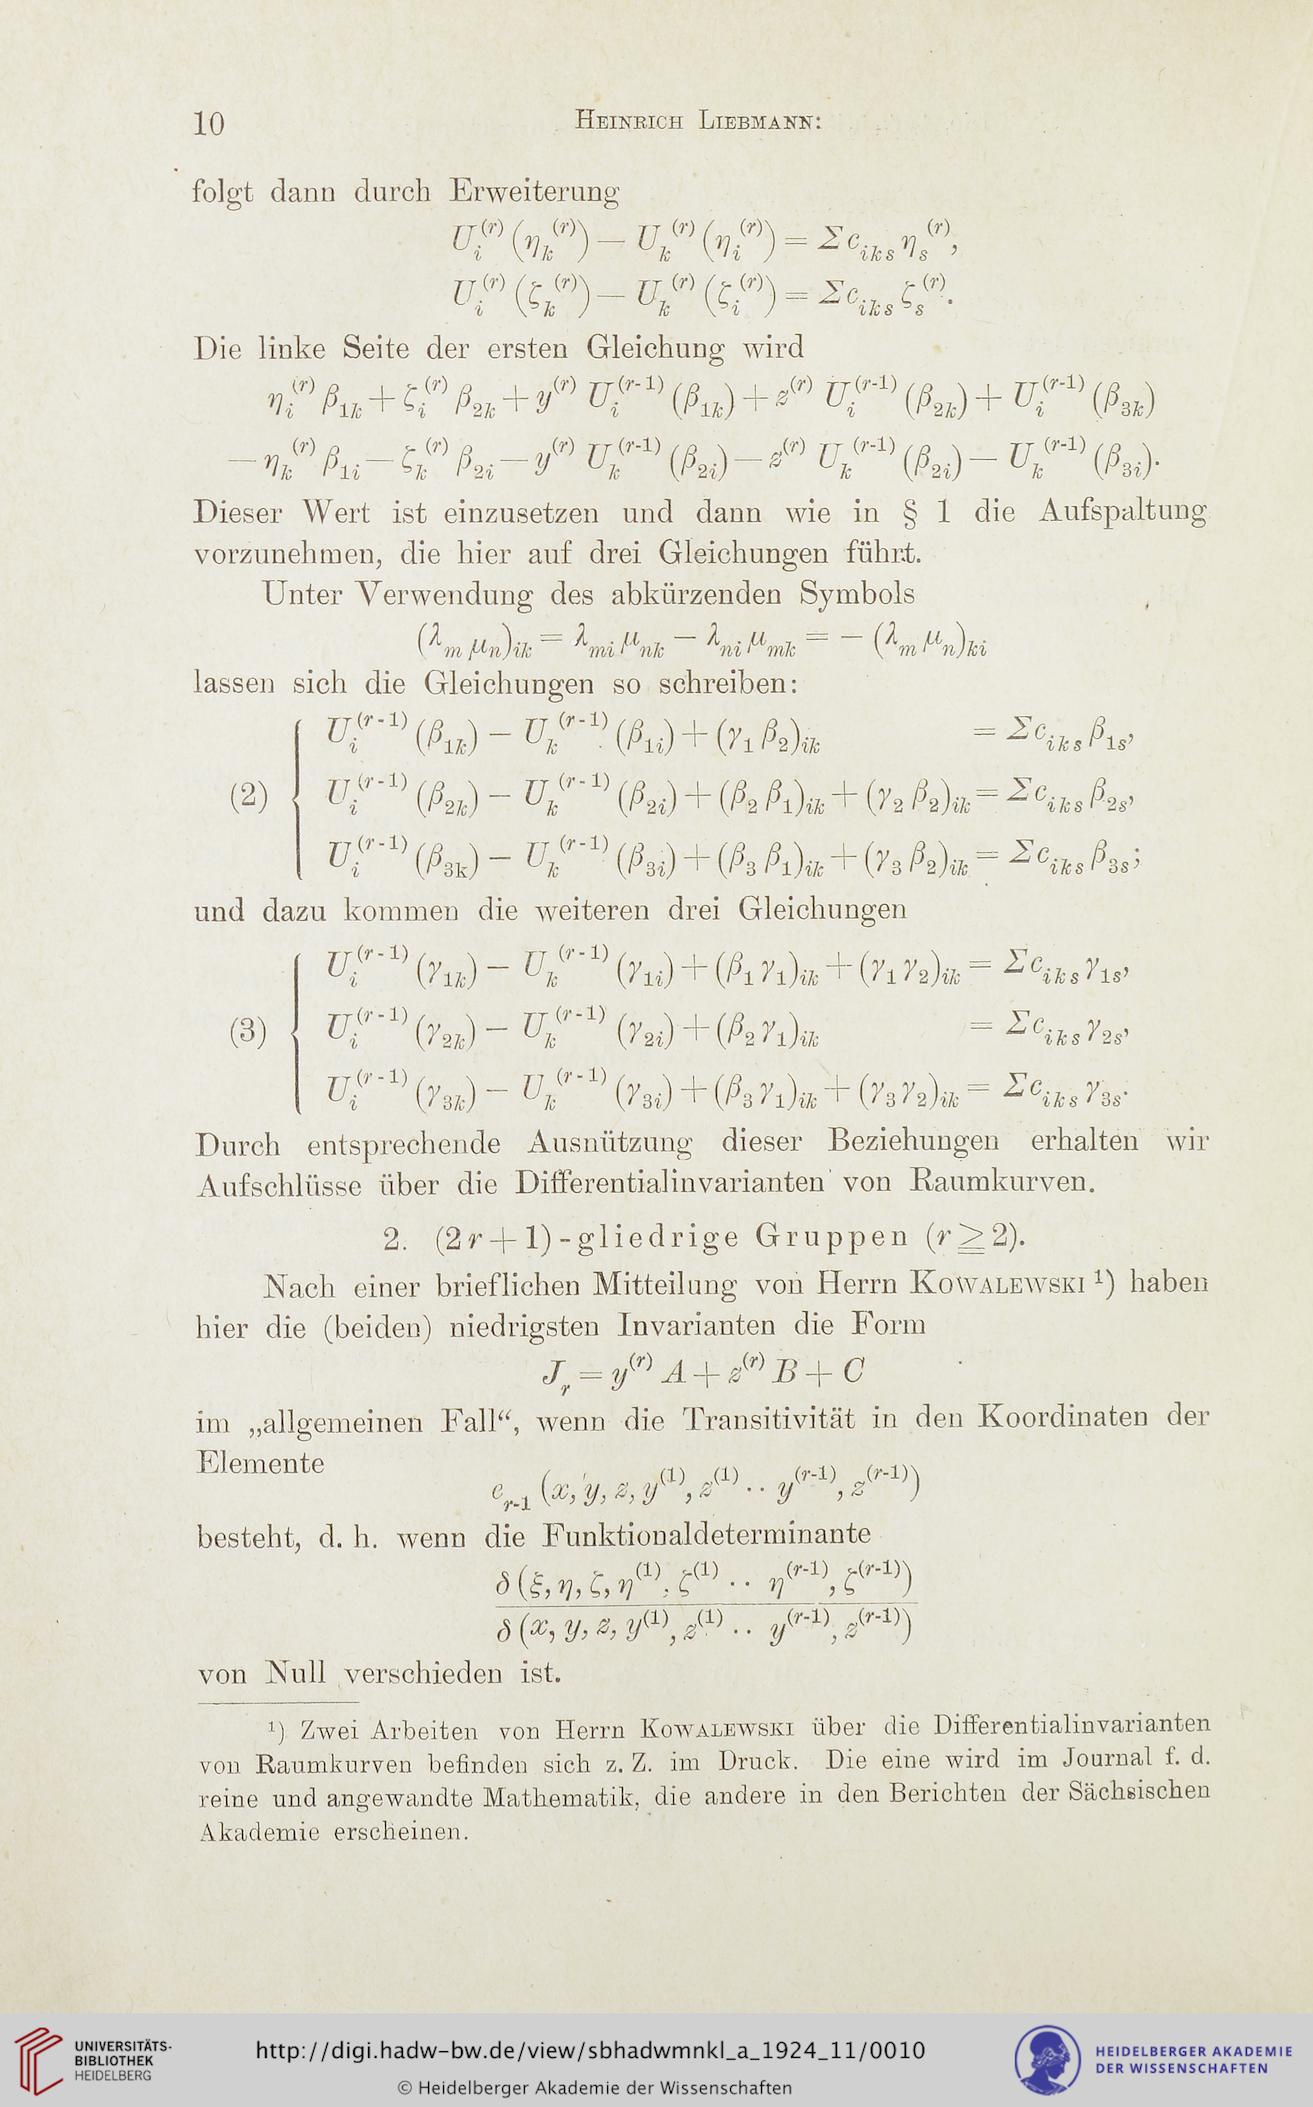 10
HEINRICH LIEBMANN:
folgt dann durch Erweiterung
U_i^(r) (η_k^(r)) — U_k^(r) (η_i^(r)) = Σ c_iks η_s^(r),
U_i^(r) (ζ_k^(r)) — U_k^(r) (ζ_i^(r)) = Σ c_iks ζ_s^(r).
Die linke Seite der ersten Gleichung wird
η_i^(r) β_1k + ζ_i^(r) β_2k + y^(r) U_i^(r-1) (β_1k) + z^(r) U_i^(r-1) (β_2k) + U_i^(r-1) (β_3k)
— η_k^(r) β_1i — ζ_k^(r) β_2i — y^(r) U_k^(r-1) (β_2i) — z^(r) U_k^(r-1) (β_2i) — U_k^(r-1) (β_3i).
Dieser Wert ist einzusetzen und dann wie in § 1 die Aufspaltung
vorzunehmen, die hier auf drei Gleichungen führt.
Unter Verwendung des abkürzenden Symbols
(λ_m μ_n)_ik = λ_mi μ_nk — λ_ni μ_mk = — (λ_m μ_n)_ki
lassen sich die Gleichungen so schreiben:
U_i^(r-1) (β_1k) — U_k^(r-1) (β_1i) + (γ_1 β_2)_ik = Σ c_iks β_1s,
(2) U_i^(r-1) (β_2k) — U_k^(r-1) (β_2i) + (β_2 β_1)_ik + (γ_2 β_2)_ik = Σ c_iks β_2s,
U_i^(r-1) (β_3k) — U_k^(r-1) (β_3i) + (β_3 β_1)_ik + (γ_3 β_2)_ik = Σ c_iks β_3s;
und dazu kommen die weiteren drei Gleichungen
U_i^(r-1) (γ_1k) — U_k^(r-1) (γ_1i) + (β_1 γ_1)_ik + (γ_1 γ_2)_ik = Σ c_iks γ_1s,
(3) U_i^(r-1) (γ_2k) — U_k^(r-1) (γ_2i) + (β_2 γ_1)_ik = Σ c_iks γ_2s,
U_i^(r-1) (γ_3k) — U_k^(r-1) (γ_3i) + (β_3 γ_1)_ik + (γ_3 γ_2)_ik = Σ c_iks γ_3s.
Durch entsprechende Ausnützung dieser Beziehungen erhalten wir
Aufschlüsse über die Differentialinvarianten von Raumkurven.
2. (2r+1)-gliedrige Gruppen (r≧2).
Nach einer brieflichen Mitteilung von Herrn KOWALEWSKI ¹) haben
hier die (beiden) niedrigsten Invarianten die Form
J_r = y^(r) A + z^(r) B + C
im „allgemeinen Fall“, wenn die Transitivität in den Koordinaten der
Elemente
e_r-1 (x, y, z, y^(1), z^(1) .. y^(r-1), z^(r-1))
besteht, d. h. wenn die Funktionaldeterminante
δ (ξ, η, ζ, η^(1), ζ^(1) .. η^(r-1), ζ^(r-1))
δ (x, y, z, y^(1), z^(1) .. y^(r-1), z^(r-1))
von Null verschieden ist.
¹) Zwei Arbeiten von Herrn KOWALEWSKI über die Differentialinvarianten
von Raumkurven befinden sich z. Z. im Druck. Die eine wird im Journal f. d.
reine und angewandte Mathematik, die andere in den Berichten der Sächsischen
Akademie erscheinen.
UNIVERSITÄTS-
BIBLIOTHEK
HEIDELBERG
http://digi.hadw-bw.de/view/sbhadwmnkl_a_1924_11/0010
© Heidelberger Akademie der Wissenschaften
HEIDELBERGER AKADEMIE
DER WISSENSCHAFTEN